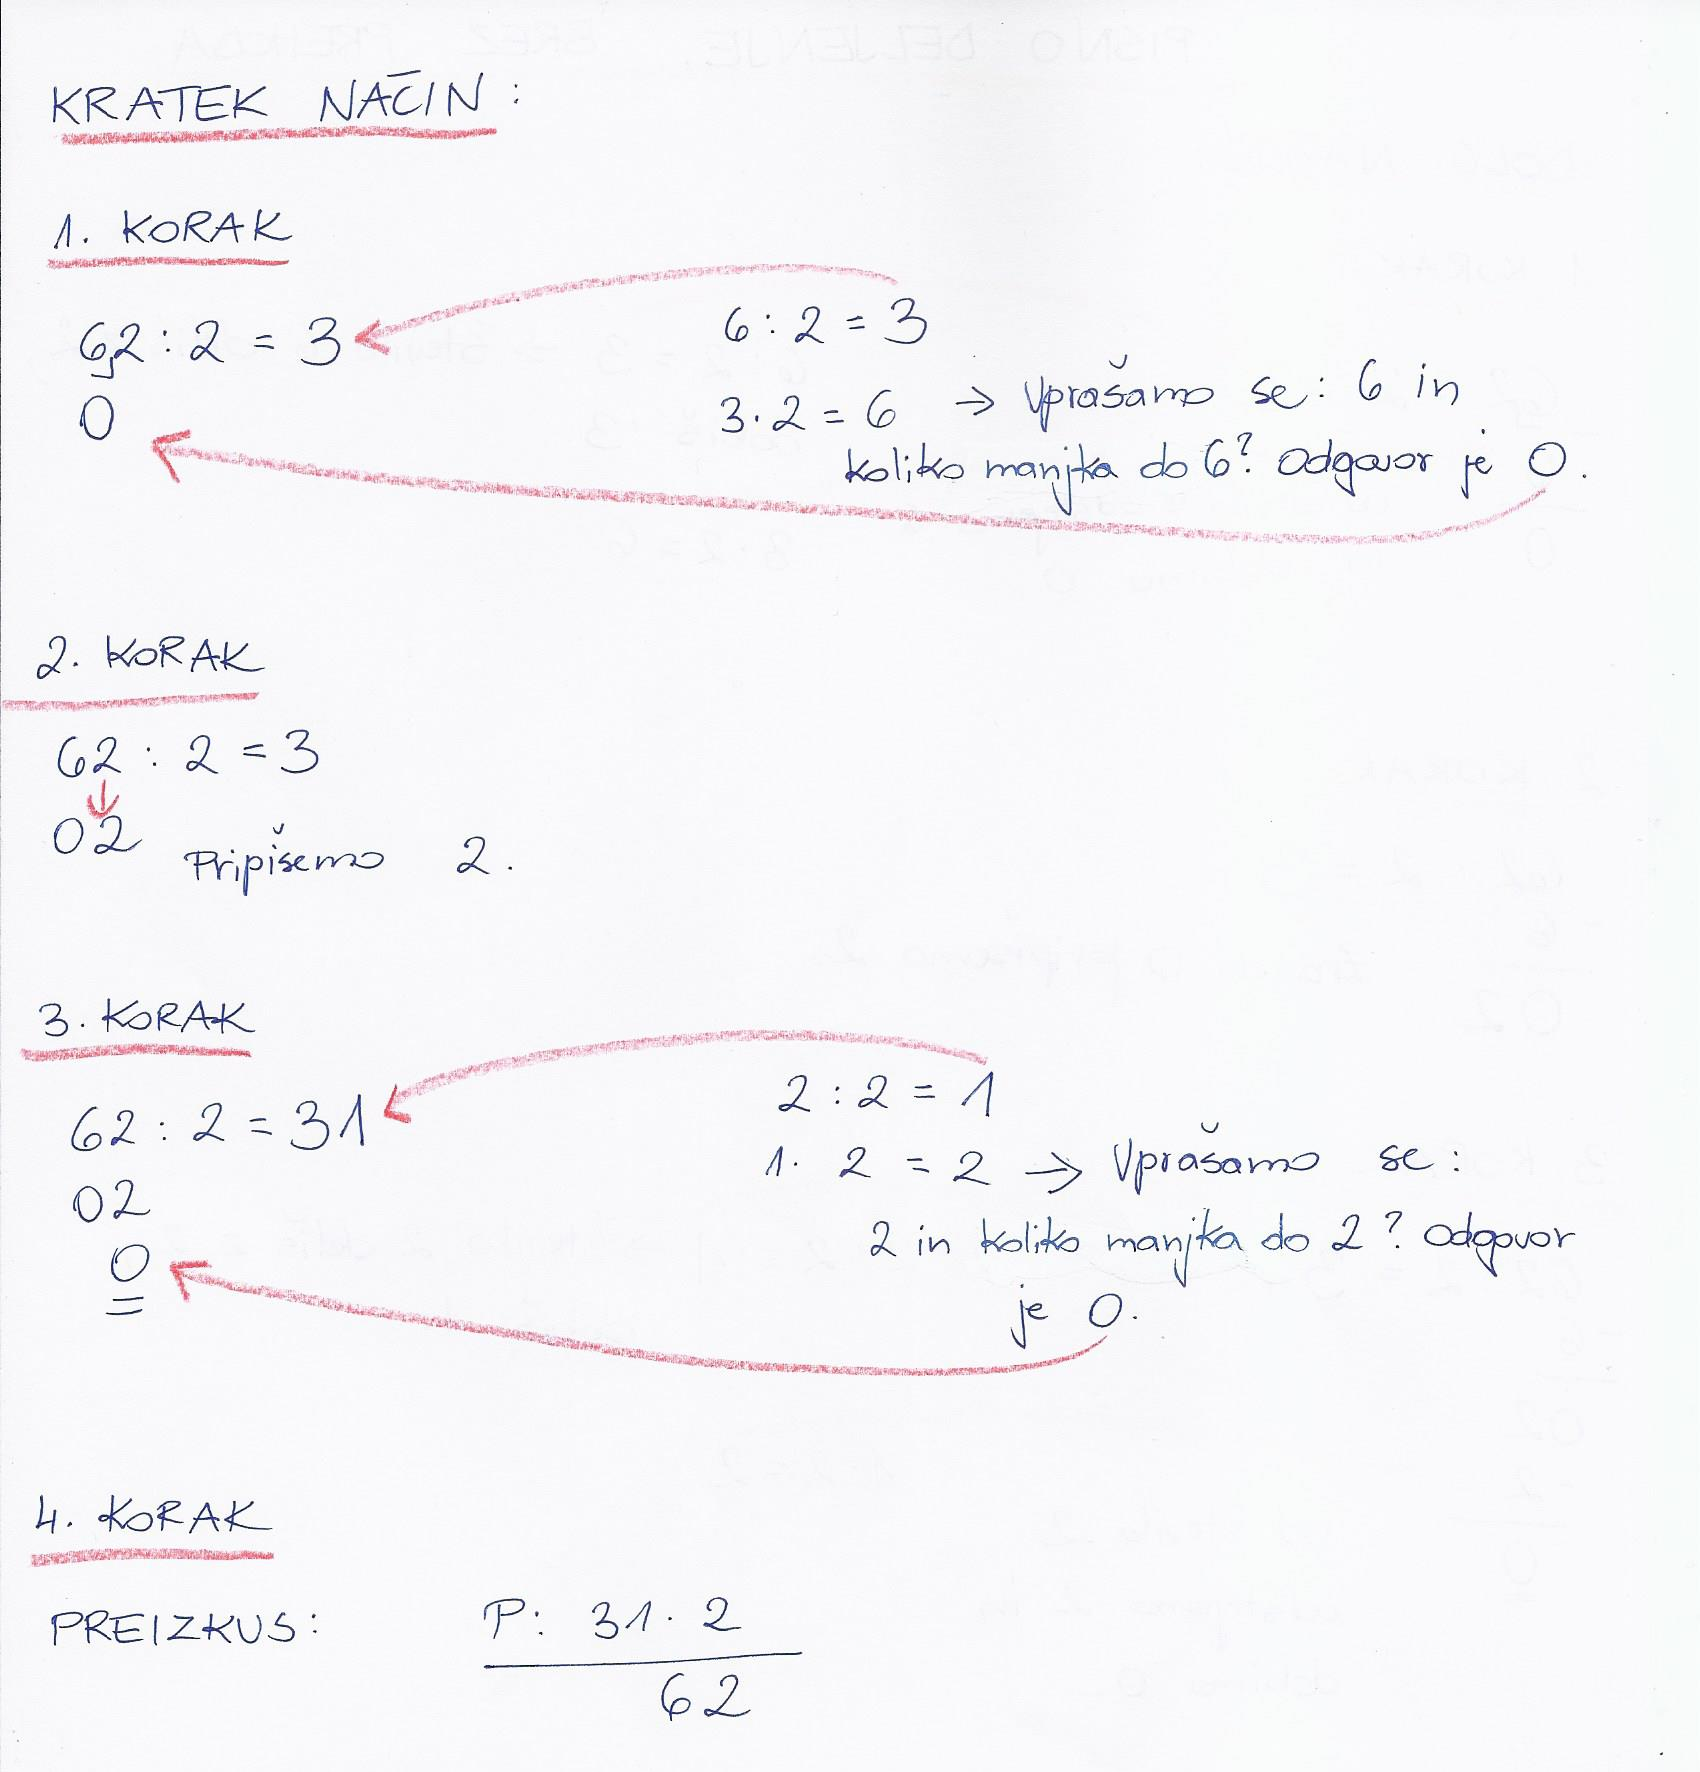 KRATEK NAČIN:
1. KORAK
62 : 2 = 3
0
6 : 2 = 3
3 · 2 = 6 → Vprašamo se: 6 in
koliko manjka do 6? Odgovor je 0.
2. KORAK
62 : 2 = 3
02 Pripišemo 2.
3. KORAK
62 : 2 = 31
02
0
2 : 2 = 1
1 · 2 = 2 → Vprašamo se:
2 in koliko manjka do 2? Odgovor
je 0.
4. KORAK
PREIZKUS: P: 31 · 2
62